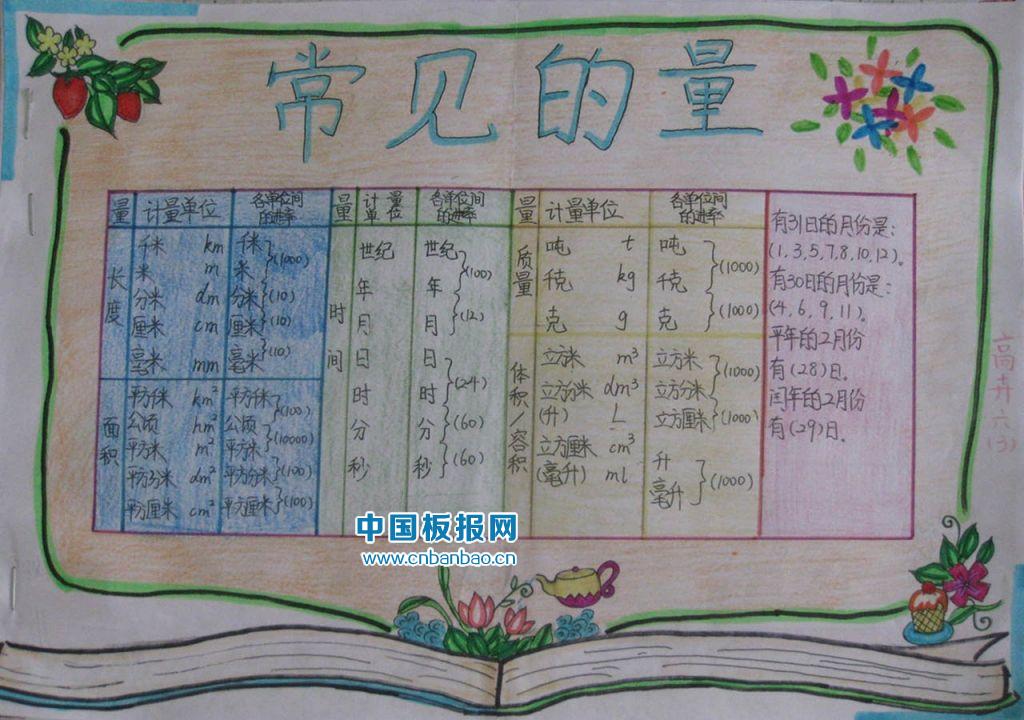 常见的量
量 计量单位 各单位间的进率
长度
千米 km 千米
(1000)
米 m 米
(10)
分米 dm 分米
(10)
厘米 cm 厘米
(10)
毫米 mm 毫米
面积
平方千米 km² 平方千米
(100)
公顷 hm² 公顷
(10000)
平方米 m² 平方米
(100)
平方分米 dm² 平方分米
(100)
平方厘米 cm² 平方厘米
量 计量单位 各单位间的进率
时间
世纪 世纪
(100)
年 年
(12)
月 月
日 日
(24)
时 时
(60)
分 分
(60)
秒 秒
量 计量单位 各单位间的进率
质量
吨 t 吨
(1000)
千克 kg 千克
(1000)
克 g 克
体积/容积
立方米 m³ 立方米
(1000)
立方分米 dm³ 立方分米
(升) L 立方厘米
(1000)
立方厘米 cm³ 升
(毫升) ml 毫升
(1000)
有31日的月份是:
(1,3,5,7,8,10,12)。
有30日的月份是:
(4,6,9,11)。
平年的2月份
有(28)日。
闰年的2月份
有(29)日。
高卉六(3)
中国板报网
www.cnbanbao.cn